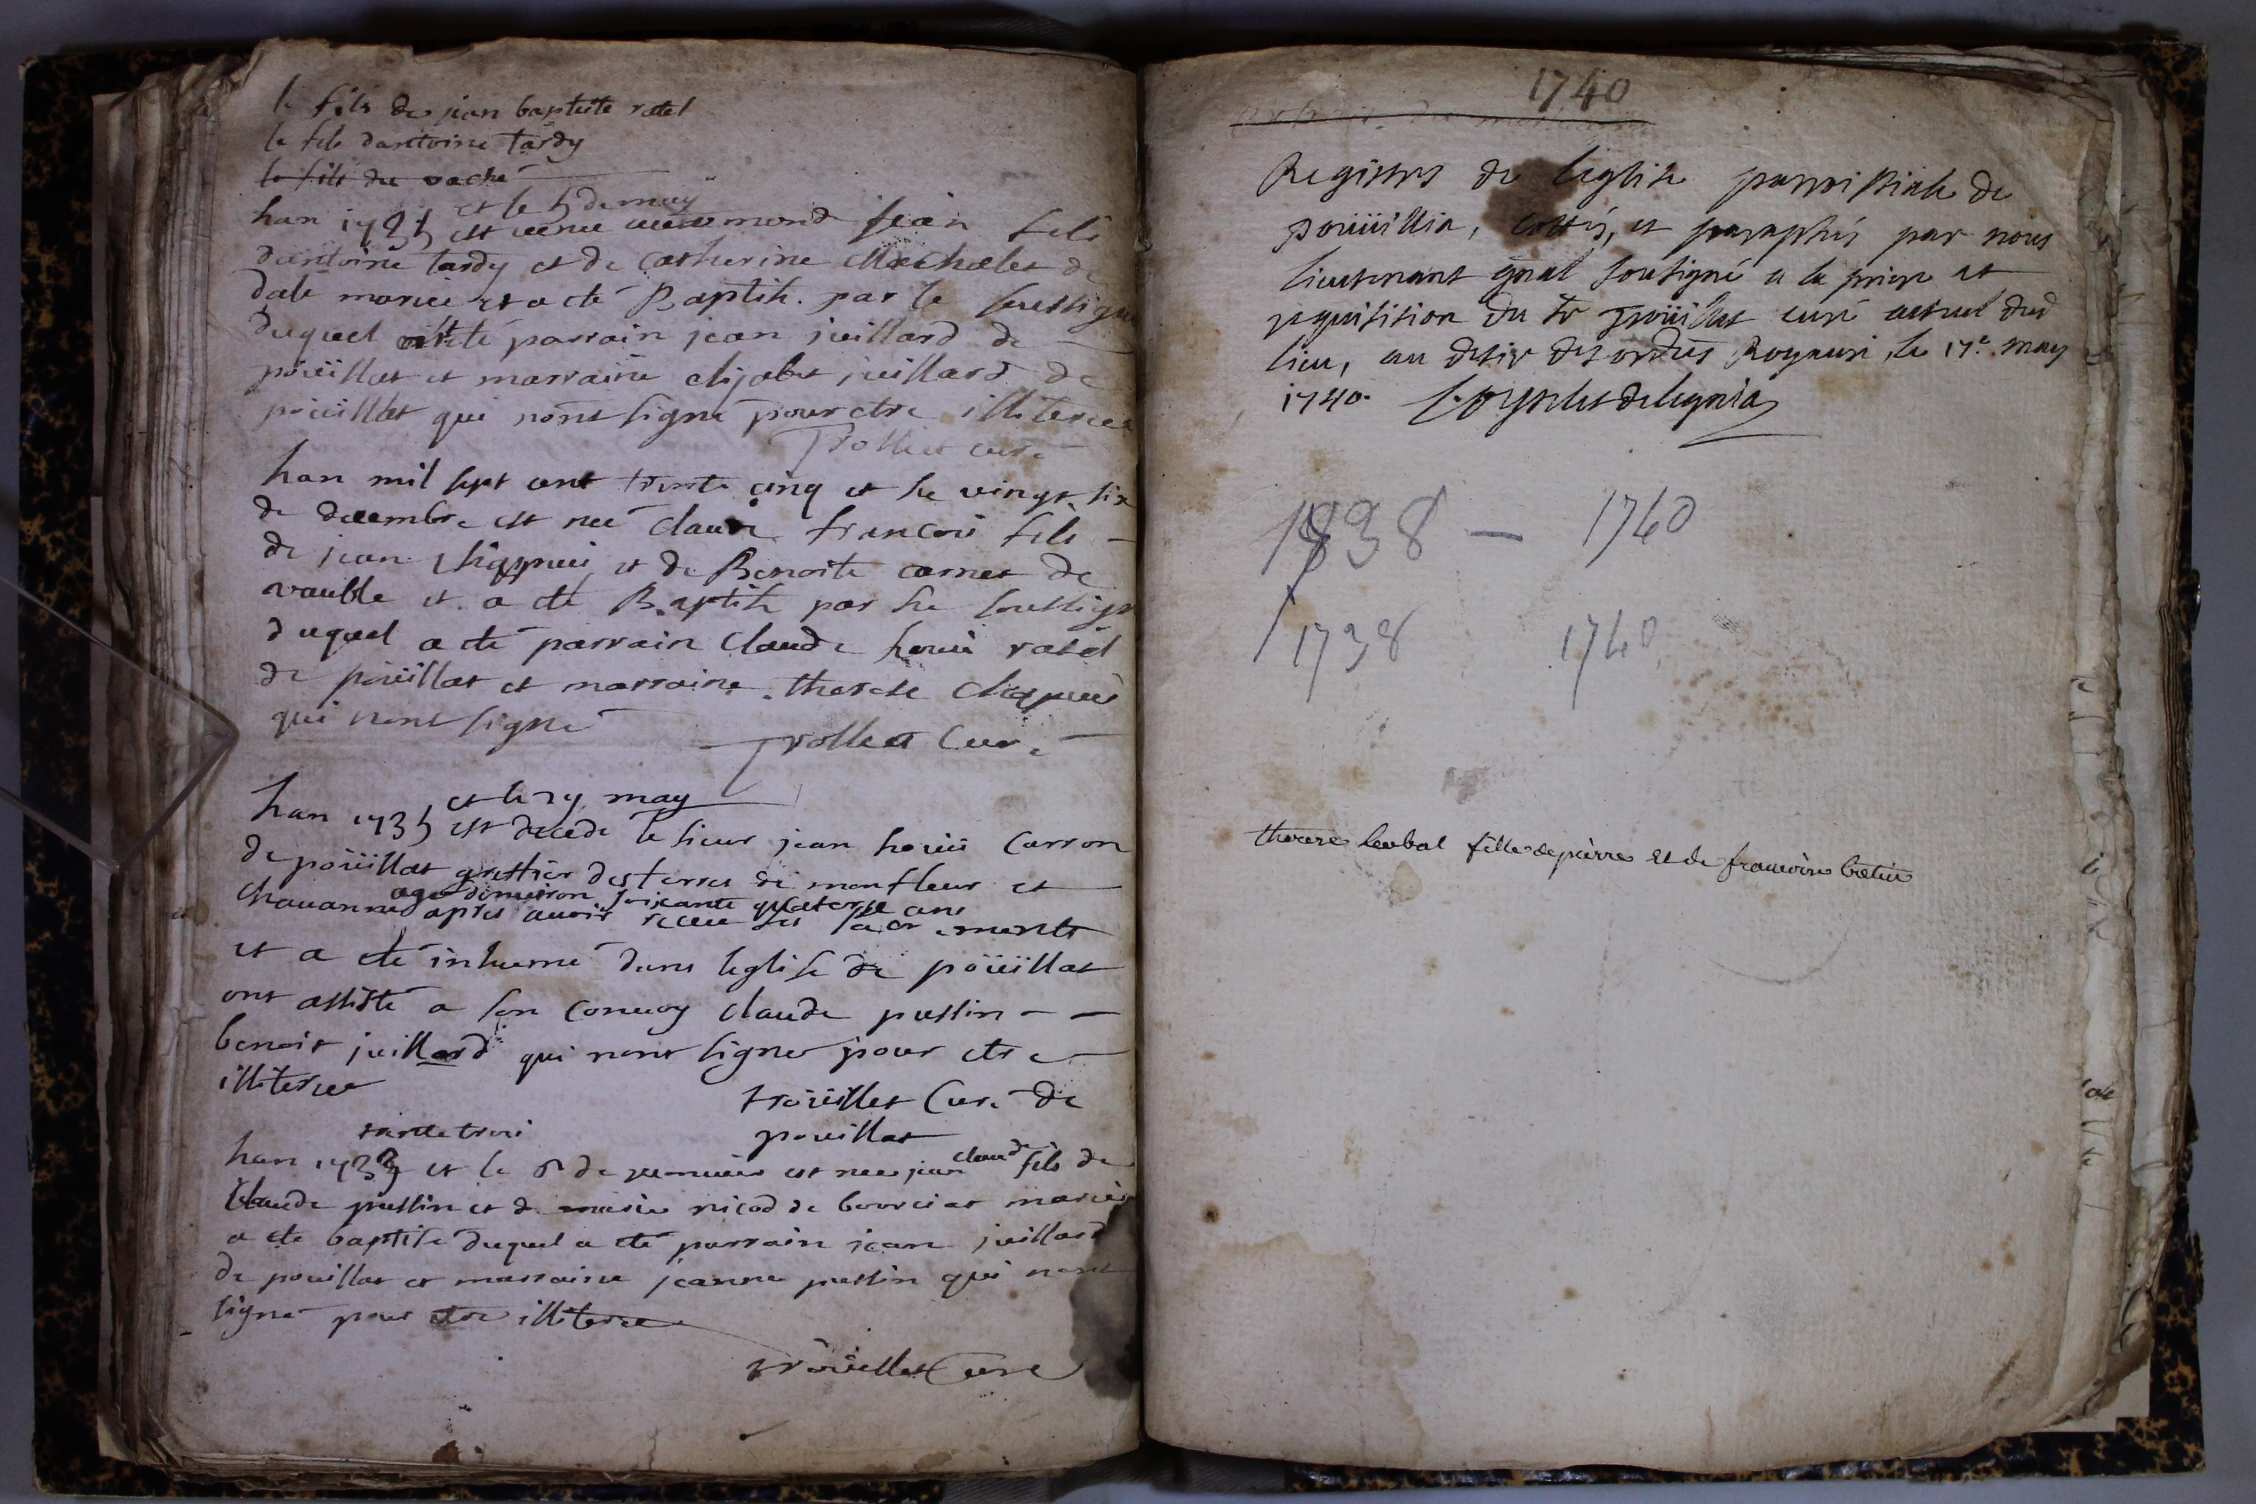 le fils de jean baptiste ratel
le fils dantoine tardy
le fils du vaché
et le 5 de may
han 1735 est venu au monde jean fils
dantoine tardy et de catherine de
dale mariés et a été Baptisé par le soussigné
duquel a été parrain jean juillard de
poüillat et marraine elizabet juillard de
poüillat qui nont signé pour etre illiterces
Trollier curé
han mil sept cent trente cinq et le vingt six
de decembre est neé claude francois fils
de jean et de Benoite carnet de
vauble et a été Baptisé par le soussigné
duquel a été parrain claude louis ratel
de poüillat et marraine therese
qui nont signé
Trollier Curé
et le 29 may
han 1735 est decedé le sieur jean louis Carron
de poüillat greffier des terres de monfleur et
agé denviron soixante quatorze ans
chavannes apres avoir receu les sacrements
et a été inhumé dans leglise de poüillat
ont assisté a son convoy claude pussin
benoit juillard qui nont signé pour etre
illiterces
troüillet Curé de
poüillat
trante trois
han 1733 et le 6 de janvier est neé jean claude fils de
Claude pussin et de marie nicod de bourciat mariés
a été baptisé duquel a été parrain jean juillard
de poüillat et marraine jeanne pussin qui nont
signé pour etre illiterces
troüillet Curé
1740
Registres de leglise parroissiale de
poüüillia, cottés, et paraphés par nous
lieutenant gnal soussigné a la priere et
requisition du sr troüillet curé actuel dud
lieu, au desir des ordres Royaux, le 17e may
1740.
1838 - 1760
1738 1760
therese fille de pierre et de francoise